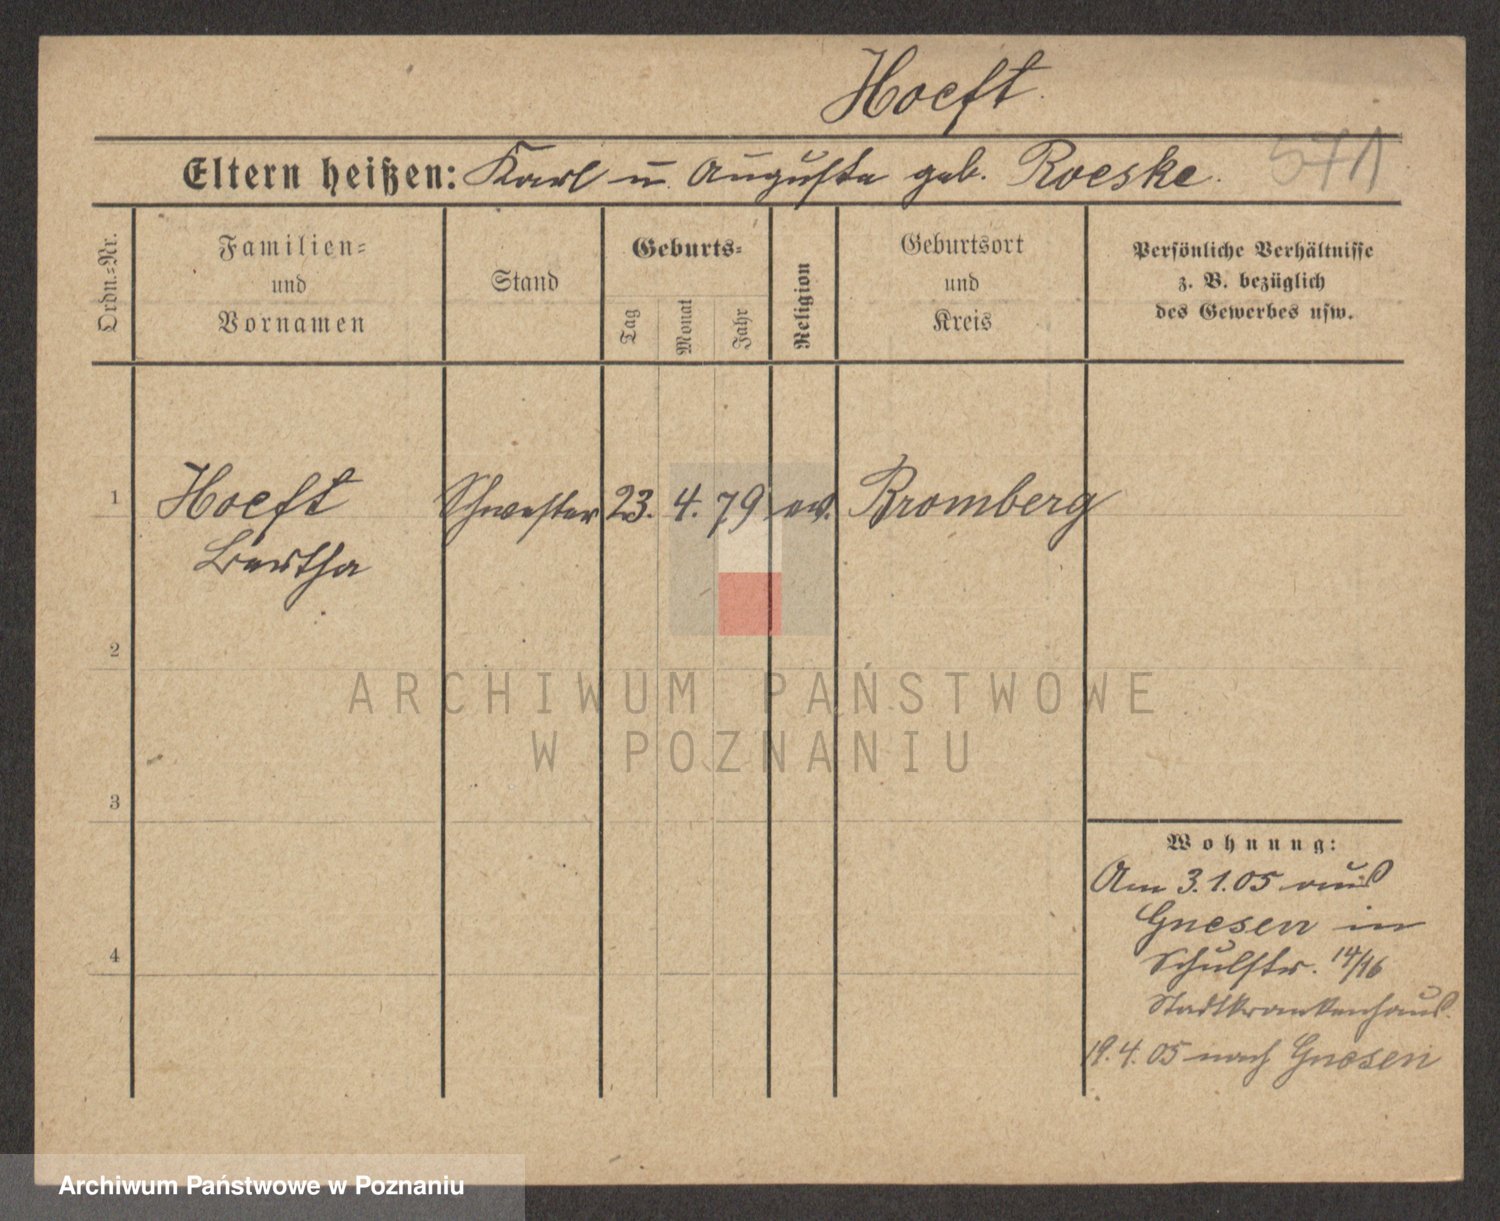 Hoeft.
Eltern heißen: Karl u. Auguste geb. Roeske.
571
Ordn.-Nr.
Familien-
und
Vornamen
Stand
Geburts-
Tag
Monat
Jahr
Religion
Geburtsort
und
Kreis
Persönliche Verhältnisse
z. B. bezüglich
des Gewerbes usw.
1 Hoeft Schwester 23. 4. 79 ev. Bromberg
Bertha
2
ARCHIWUM PAŃSTWOWE
W POZNANIU
3
Wohnung:
Am 3.1.05 aus
Gnesen in
Schulstr. 14/16
4
Stadtkrankenhaus.
19.4.05 nach Gnesen
Archiwum Państwowe w Poznaniu